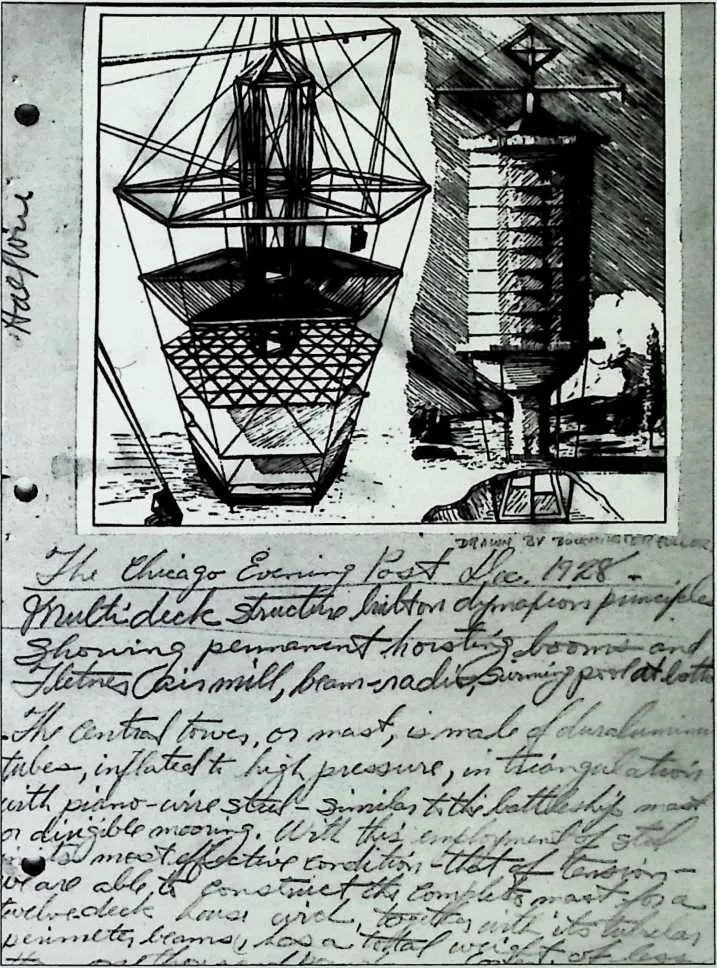 Half size
DRAWN BY BUCKMINSTER FULLER
The Chicago Evening Post Dec. 1928 -
Multi deck structure built on dymaxion principle
showing permanent hoisting booms and
Fletner air mill, beam-radio, swimming pool at bottom
The central tower, or mast, is made of duralumin
tubes, inflated to high pressure, in triangulation
with piano-wire steel - similar to the battleship mast
or dirigible mooring. With this employment of steel
in its most effective condition - that of tension -
we are able, to construct the complete mast for a
twelve deck house which, together with its tubular
perimeter beams, has a total weight of less